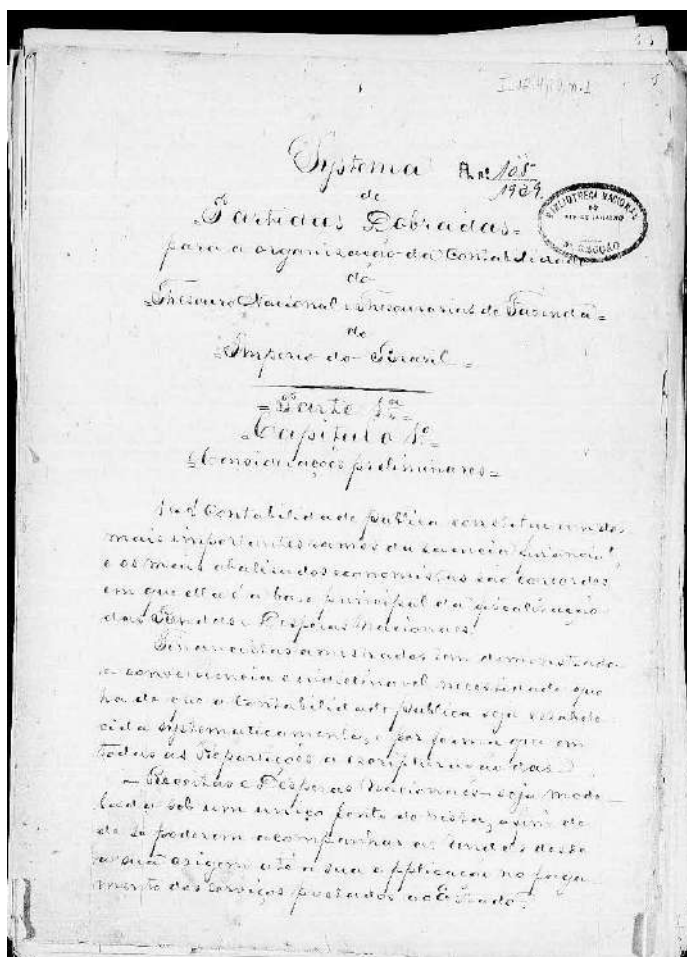 I-12,4,11,n.1
Systema
A. nº 105
1929.
de
Partidas Dobradas=
para a organização da Contabilidade
do
=Thesouro Nacional e Thesourarias de Fazenda=
do
=Imperio do Brasil=
=Parte 1ª=
=Capitulo 1º=
=Considerações preliminares=
BIBLIOTHECA NACIONAL
RIO DE JANEIRO
SECÇÃO
A Contabilidade publica constitue um dos
mais importantes ramos da sciencia financial,
e os mais abalisados economistas são concordes
em que ella é a base principal da fiscalisação
das Rendas e Despesas Nacionaes.
Financistas amestrados tem demonstrado
a conveniencia e indeclinavel necessidade que
ha de que a Contabilidade publica seja estabele
cida systematicamente, e por forma que em
todas as Repartições a escripturação das
Receitas e Despesas Nacionaes seja mode
lada sob um unico ponto de vista, afim de
se poderem acompanhar as rendas desde
a sua origem até a sua applicação no paga
mento dos serviços prestados ao Estado.